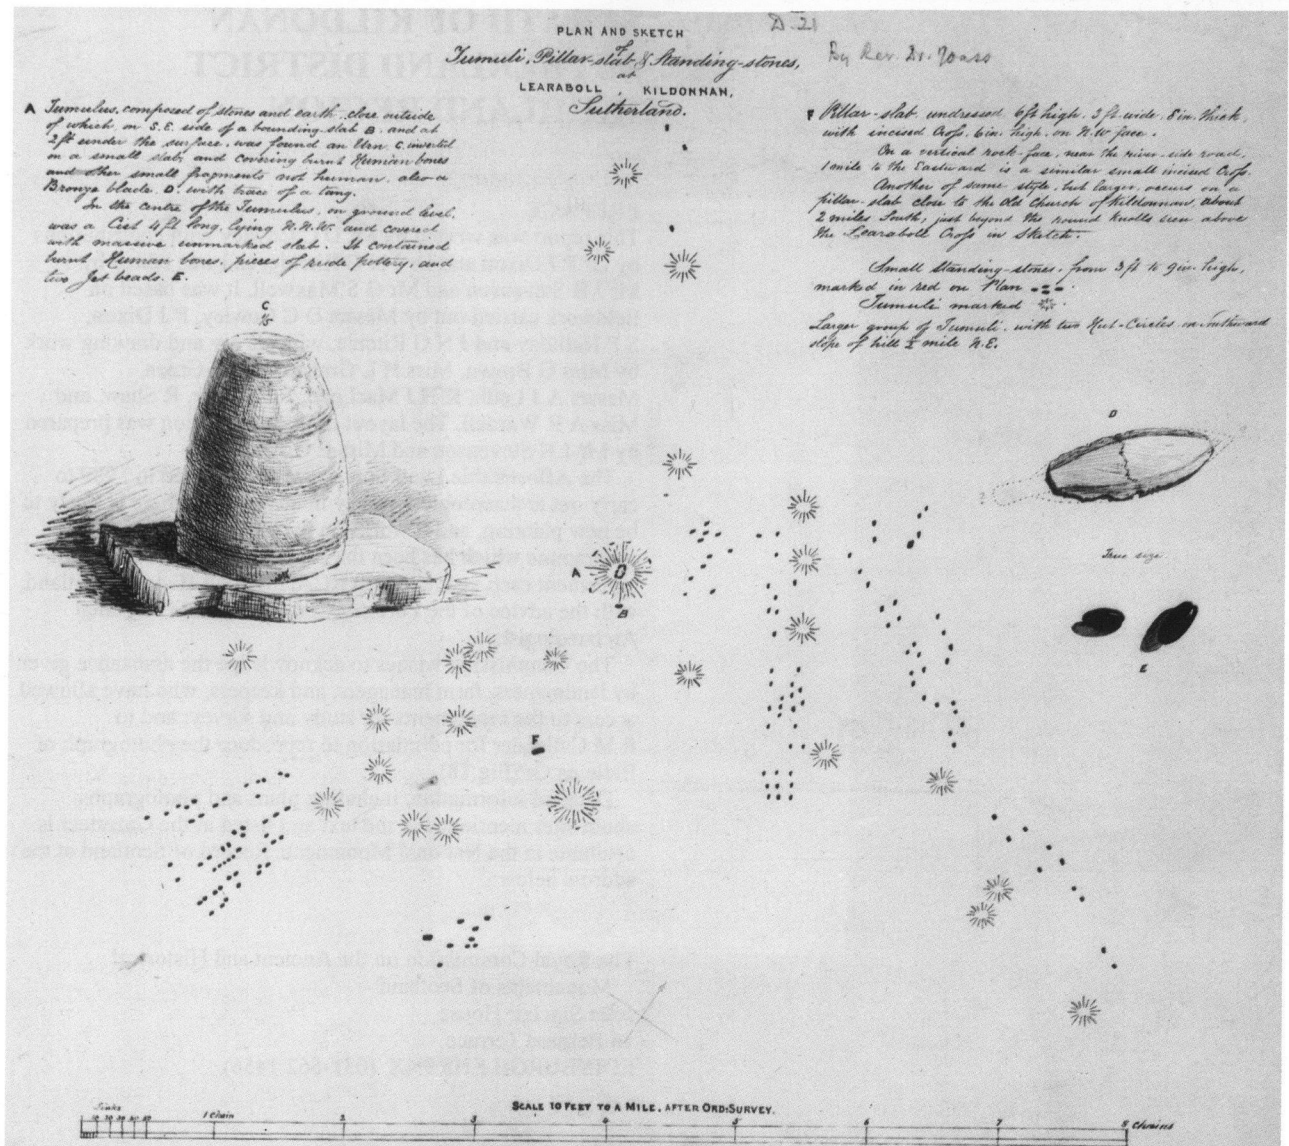 PLAN AND SKETCH
of
Tumuli, Pillar-slab & Standing-stones,
at
LEARABOLL, KILDONNAN,
Sutherland.
D 21
By Rev. Dr. Joass
A Tumulus, composed of stones and earth, close outside
of which, on S.E. side of a bounding-slab B, and at
2 ft under the surface, was found an Urn C, inverted
on a small slab, and covering burnt Human bones
and other small fragments not human, also a
Bronze blade, D, with trace of a tang.
In the centre of the Tumulus, on ground level,
was a Cist 4 ft long, lying N.N.W. and covered
with massive unmarked slab. It contained
burnt Human bones, pieces of rude pottery, and
two Jet beads. E.
F Pillar-slab, undressed 6 ft high, 2 ft wide, 8 in. thick,
with incised Cross, 6 in. high, on N.W. face.
On a vertical rock-face, near the river-side road,
1 mile to the Eastward is a similar small incised Cross.
Another of same style, but larger, occurs on a
pillar-slab close to the Old Church of Kildonnan, about
2 miles South, just beyond the round knolls seen above
the Learaboll Cross in Sketch.
Small Standing-stones, from 3 ft to 9 in. high,
marked in red on Plan
Tumuli marked
Larger group of Tumuli, with two Hut-Circles on southward
slope of hill ½ mile N.E.
C
D
?
True size
E
A
B
F
SCALE 10 FEET TO A MILE, AFTER ORD: SURVEY.
Links
10 20 30 40 50
1 Chain
2
3
4
5
6
7
8 Chains